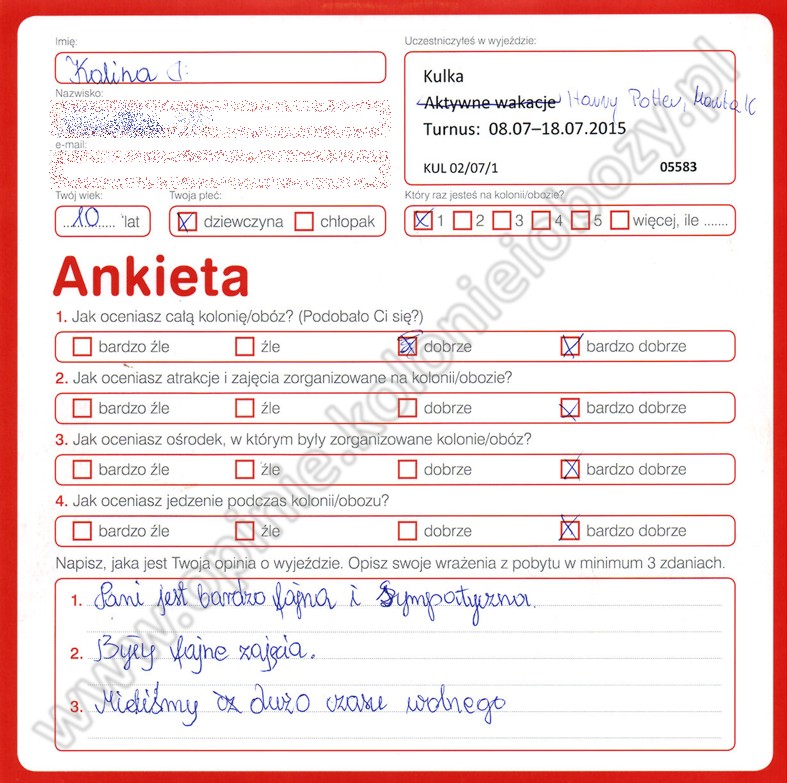 Imię:
Kalina J.
Nazwisko:
e-mail:
Twój wiek:
10 lat
Twoja płeć:
dziewczyna chłopak
Uczestniczyłeś w wyjeździe:
Kulka
Aktywne wakacje Harry Potter,
Turnus: 08.07–18.07.2015
KUL 02/07/1 05583
Który raz jesteś na kolonii/obozie?
1 2 3 4 5 więcej, ile .......
Ankieta
1. Jak oceniasz całą kolonię/obóz? (Podobało Ci się?)
bardzo źle źle dobrze bardzo dobrze
2. Jak oceniasz atrakcje i zajęcia zorganizowane na kolonii/obozie?
bardzo źle źle dobrze bardzo dobrze
3. Jak oceniasz ośrodek, w którym były zorganizowane kolonie/obóz?
bardzo źle źle dobrze bardzo dobrze
4. Jak oceniasz jedzenie podczas kolonii/obozu?
bardzo źle źle dobrze bardzo dobrze
Napisz, jaka jest Twoja opinia o wyjeździe. Opisz swoje wrażenia z pobytu w minimum 3 zdaniach.
1. Pani jest bardzo fajna i sympatyczna.
2. Były fajne zajęcia.
3. Mieliśmy dużo czasu wolnego
www.opinie.kolonieiobozy.pl